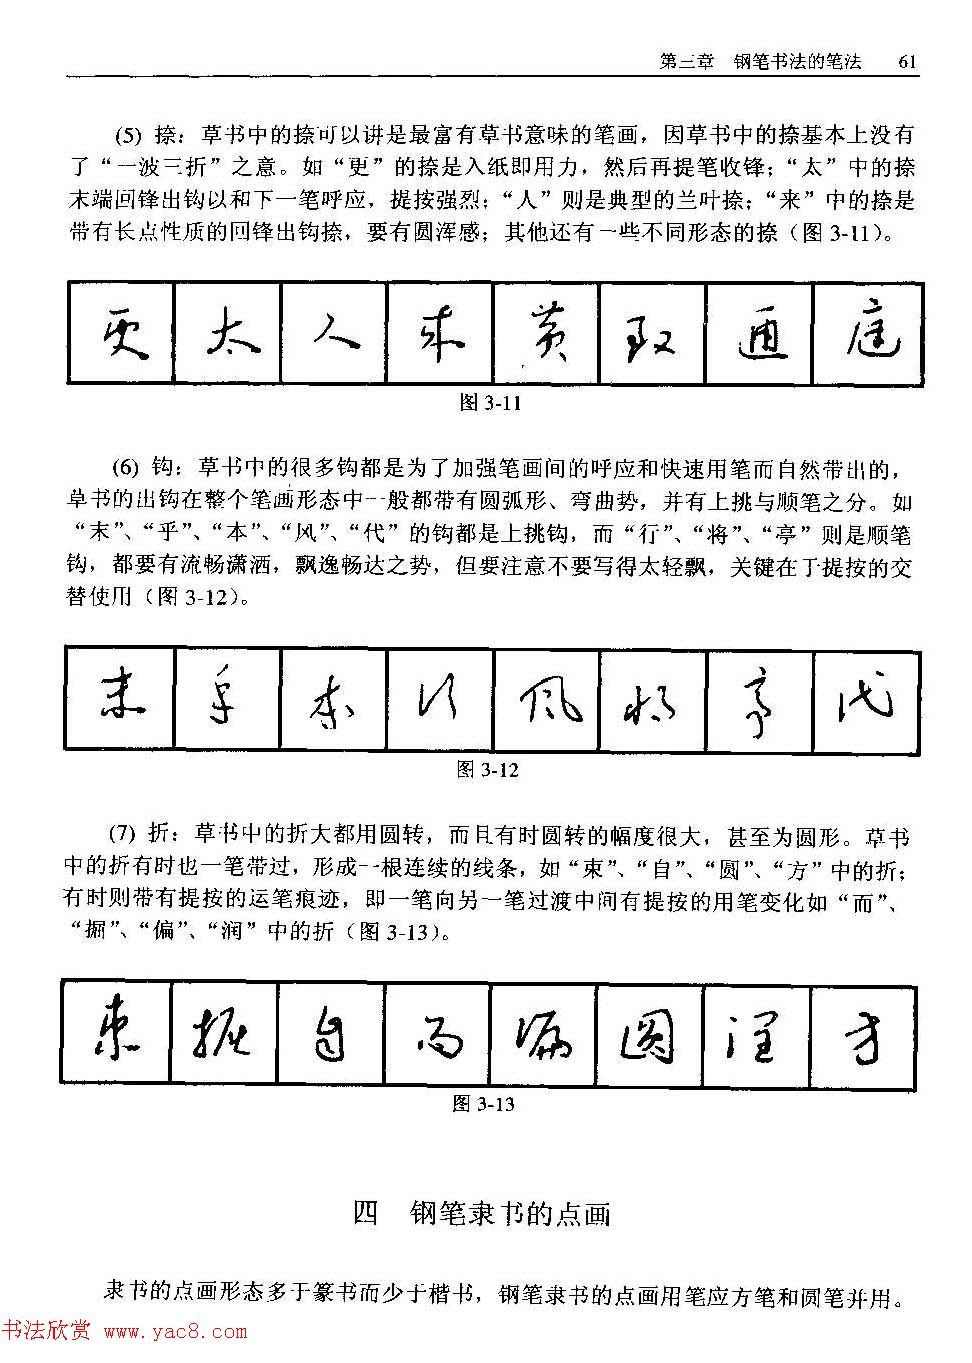 第三章 钢笔书法的笔法 61
(5) 捺：草书中的捺可以讲是最富有草书意味的笔画，因草书中的捺基本上没有
了“一波三折”之意。如“更”的捺是入纸即用力，然后再提笔收锋；“太”中的捺
末端回锋出钩以和下一笔呼应，提按强烈；“人”则是典型的兰叶捺；“来”中的捺是
带有长点性质的回锋出钩捺，要有圆浑感；其他还有一些不同形态的捺（图 3-11）。
更 太 人 来 黄 取 通 庭
图 3-11
(6) 钩：草书中的很多钩都是为了加强笔画间的呼应和快速用笔而自然带出的，
草书的出钩在整个笔画形态中一般都带有圆弧形、弯曲势，并有上挑与顺笔之分。如
“末”、“乎”、“本”、“风”、“代”的钩都是上挑钩，而“行”、“将”、“亭”则是顺笔
钩，都要有流畅潇洒，飘逸畅达之势，但要注意不要写得太轻飘，关键在于提按的交
替使用（图 3-12）。
末 乎 本 行 风 将 亭 代
图 3-12
(7) 折：草书中的折大都用圆转，而且有时圆转的幅度很大，甚至为圆形。草书
中的折有时也一笔带过，形成一根连续的线条，如“束”、“自”、“圆”、“方”中的折；
有时则带有提按的运笔痕迹，即一笔向另一笔过渡中间有提按的用笔变化如“而”、
“掘”、“偏”、“润”中的折（图 3-13）。
束 掘 自 而 偏 圆 润 方
图 3-13
四 钢笔隶书的点画
隶书的点画形态多于篆书而少于楷书，钢笔隶书的点画用笔应方笔和圆笔并用。
书法欣赏 www.yac8.com